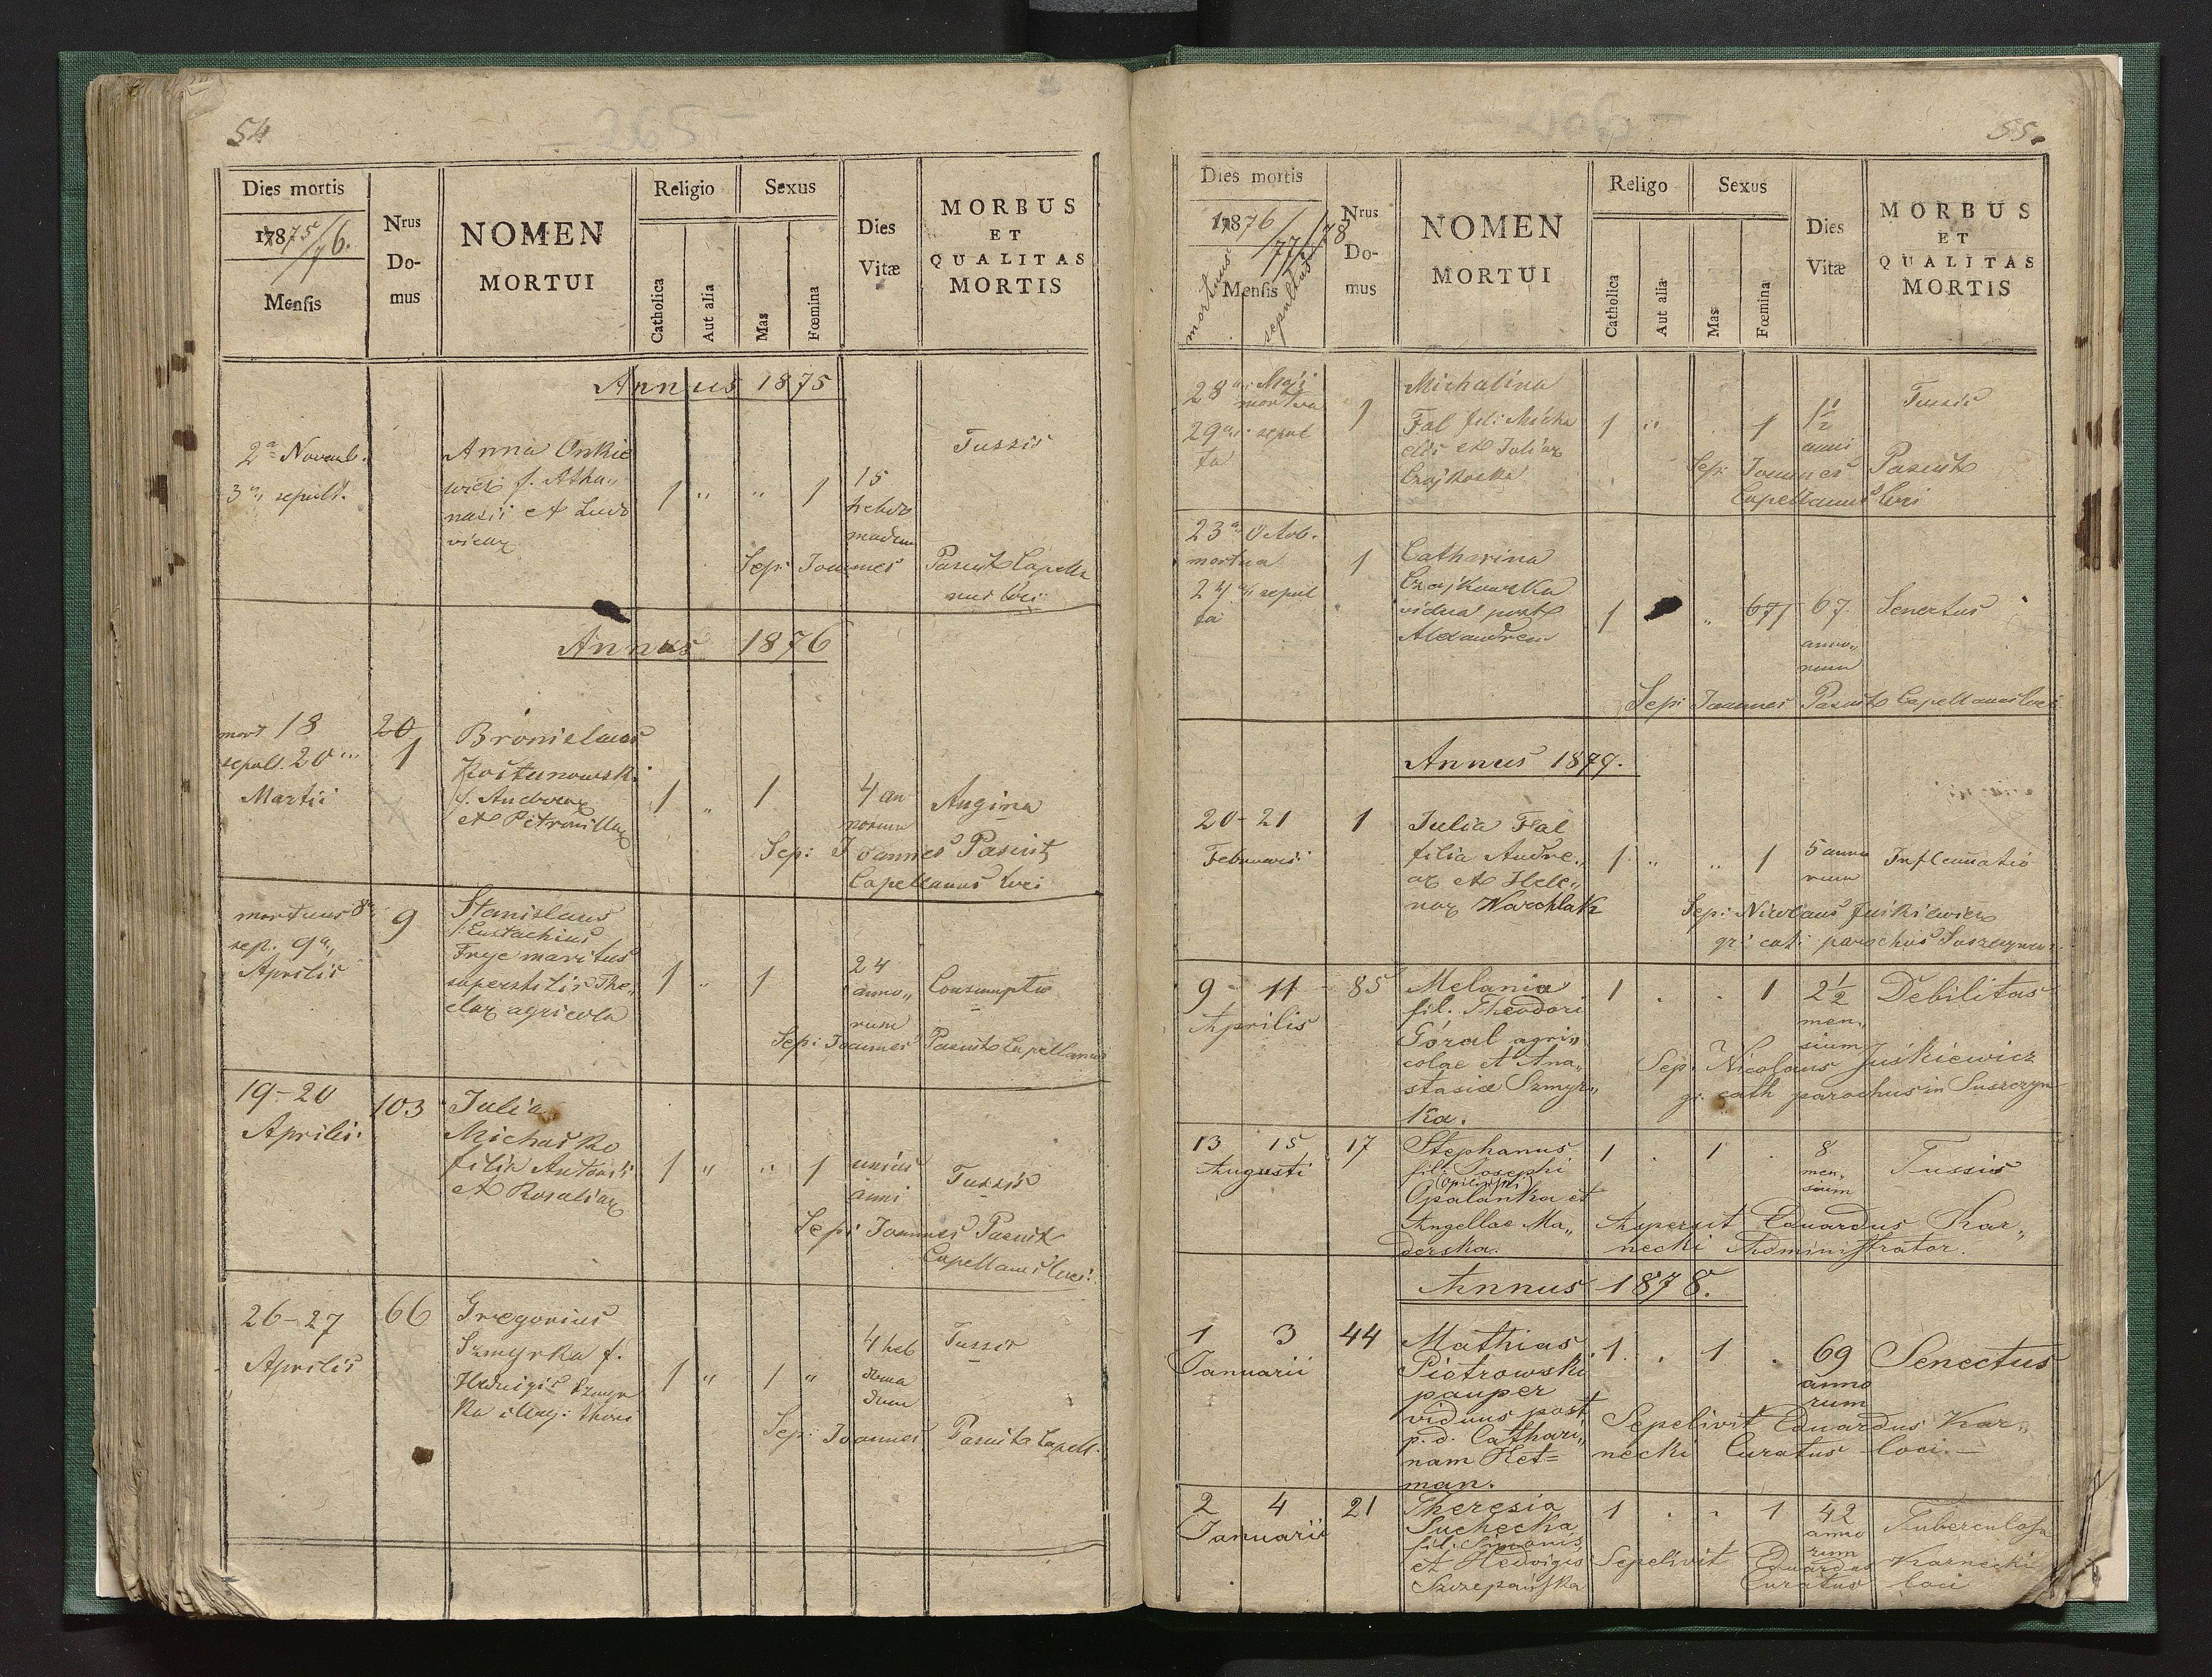 54
- 265 -
Dies mortis
1875/76.
Mensis
Nrus
Do-
mus
NOMEN
MORTUI
Religio
Catholica
Aut alia
Sexus
Mas
Fœmina
Dies
Vitæ
MORBUS
ET
QUALITAS
MORTIS
Annus 1875
2a Novemb.
3a sepult.
Anna Onkie
wicz f. Atha„
nasii et Ludo
vicae
1 „ „ 1
15
hebdo
madum
Tussis
Sep: Joannes Pasiut Capella
nus loci
Annus 1876
mort 18
sepult. 20
Martii
20
1
Bronislaus
Kostunowski
f. Andreae
et Petronillae
1 „ 1
4 an
norum
Angina
Sep: Joannes Pasiut
Capellanus loci
mortuus 8a
sep. 9a„
Aprilis
9
Stanislaus
f. Eustachius
Fryc maritus
superstitis The„
clae agricola
1 „ 1
24
anno„
rum
Consumptio
Sep: Joannes Pasiut Capellanus
19-20
Aprilis.
103
Julia
Michaśko
filia Antonii
et Rosaliae
1 „ „ 1
unius
anni
Tussis
Sep: Joannes Pasiut
Capellanus loci.
26-27
Aprilis
66
Gregorius
Szmyrka f.
Hedvigis Szmyr
ka
1 „ 1 „
4 heb
doma
dum
Tussis
Sep: Joannes Pasiut Capell.
- 266 -
55.
Dies mortis
1876/77/78
Mensis
mortuus
sepultus
Nrus
Do-
mus
NOMEN
MORTUI
Religo
Catholica
Aut alia
Sexus
Mas
Fœmina
Dies
Vitæ
MORBUS
ET
QUALITAS
MORTIS
28a Maji
mortua
29a sepul
ta
1
Michalina
Fal fili: Micha
elis et Juliae
Czajkoska
1 „ . 1
1 1/2
anni
Tussis
Sep: Joannes Pasiut
Capellanus loci
23a Octob.
mortua
24a sepul
ta
1
Catharina
Czajkowska
vidua post
Alexandrem
1 „ 67 1 67
anno„
rum
Senectus
Sep: Joannes Pasiut Capellanus loci
Annus 1879.
20-21
Februarii
1
Julia Fal
filia Andre„
ae et Hele„
nae Warchlak
1 „ „ 1
5 anno
rum
Inflamatio
Sep: Nicolaus Juśkiewicz
gr: cat: parochus Suszczynen:
9 - 11
Aprilis
85
Melania
fil. Theodori
Góral agri„
colae et Ana„
stasiae Szmyr„
ka.
1 . . 1
2 1/2
men„
sium
Debilitas
Sep. Nicolaus Juśkiewicz
gr. cath parochus in Suszczyn
13 15
Augusti
17
Stephanus
fil. Josephi
Opalanka et
Angellae Ma„
derska.
1 . 1 .
8
men„
sium
Tussis
Aspersit Eduardus Kar„
necki Administrator.
Annus 1878.
1 3
Januarii
44
Mathias
Piotrowski
pauper
viduus post
p. d. Cathari„
nam Het=
man.
1 . 1 .
69
anno
rum
Senectus
Sepelivit Eduardus Kar„
necki Curatus loci.
2 4
Januarii
21
Theresia
Suchecka
fil. Simonis
et Hedvigis
Szczepańska
1 . . 1
42
anno
rum
Tuberculosa
Sepelivit Eduardus Karnecki
Curatus loci